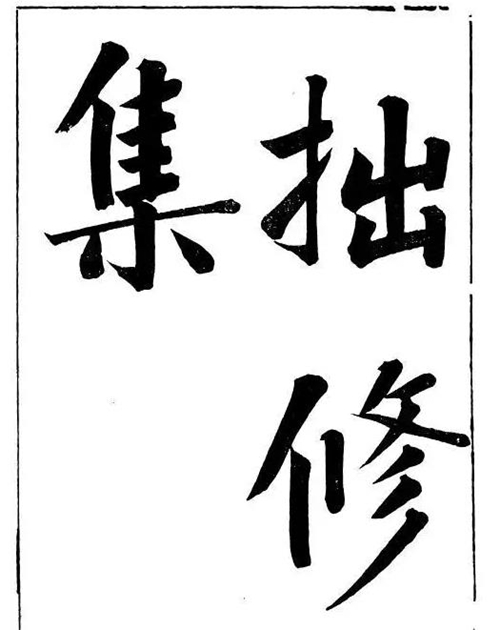 拙修
集